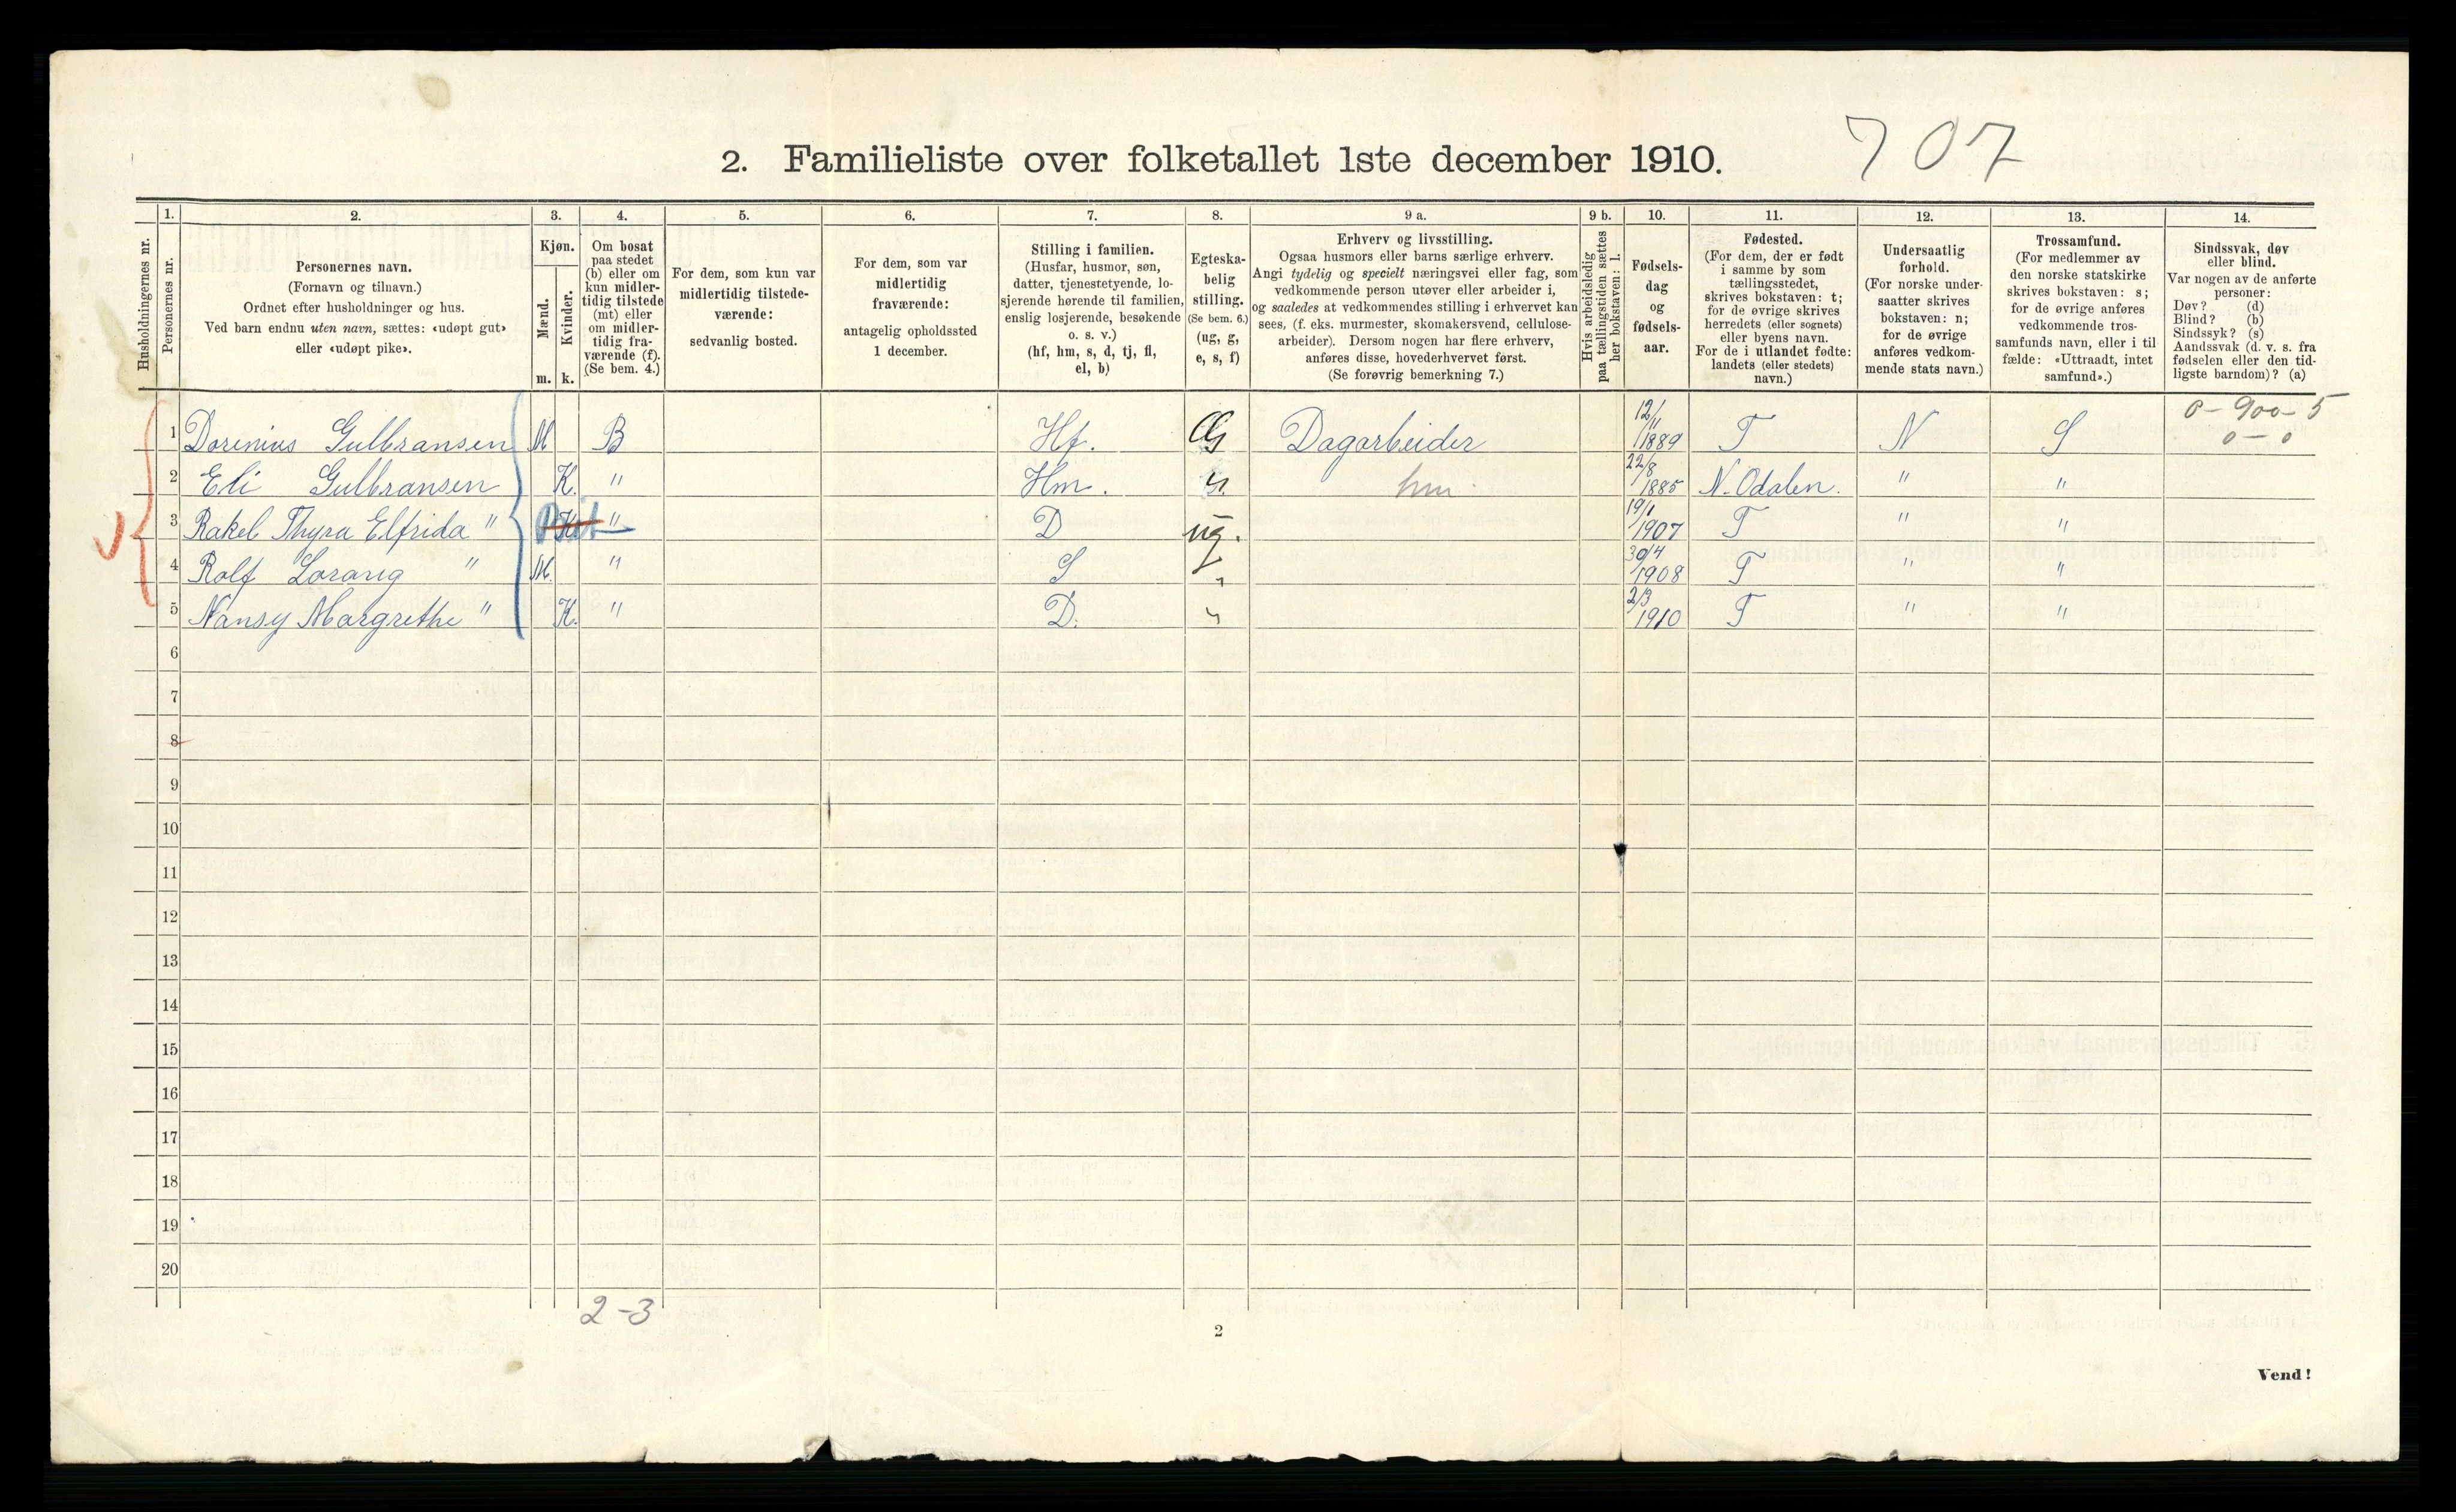 707
2. Familieliste over folketallet 1ste december 1910.
Husholdningernes nr.
1.
Personernes nr.
2.
Personernes navn.
(Fornavn og tilnavn.)
Ordnet efter husholdninger og hus.
Ved barn endnu uten navn, sættes: «udøpt gut»
eller «udøpt pike».
3.
Kjøn.
Mænd.
Kvinder.
m. k.
4.
Om bosat
paa stedet
(b) eller om
kun midler-
tidig tilstede
(mt) eller
om midler-
tidig fra-
værende (f).
(Se bem. 4.)
5.
For dem, som kun var
midlertidig tilstede-
værende:
sedvanlig bosted.
6.
For dem, som var
midlertidig
fraværende:
antagelig opholdssted
1 december.
7.
Stilling i familien.
(Husfar, husmor, søn,
datter, tjenestetyende, lo-
sjerende hørende til familien,
enslig losjerende, besøkende
o. s. v.)
(hf, hm, s, d, tj, fl,
el, b)
8.
Egteska-
belig
stilling.
(Se bem. 6.)
(ug, g,
e, s, f)
9 a.
Erhverv og livsstilling.
Ogsaa husmors eller barns særlige erhverv.
Angi tydelig og specielt næringsvei eller fag, som
vedkommende person utøver eller arbeider i,
og saaledes at vedkommendes stilling i erhvervet kan
sees, (f. eks. murmester, skomakersvend, cellulose-
arbeider). Dersom nogen har flere erhverv,
anføres disse, hovederhvervet først.
(Se forøvrig bemerkning 7.)
9 b.
Hvis arbeidsledig
paa tællingstiden sættes
her bokstaven: l.
10.
Fødsels-
dag
og
fødsels-
aar.
11.
Fødested.
(For dem, der er født
i samme by som
tællingsstedet,
skrives bokstaven: t;
for de øvrige skrives
herredets (eller sognets)
eller byens navn.
For de i utlandet fødte:
landets (eller stedets)
navn.)
12.
Undersaatlig
forhold.
(For norske under-
saatter skrives
bokstaven: n;
for de øvrige
anføres vedkom-
mende stats navn.)
13.
Trossamfund.
(For medlemmer av
den norske statskirke
skrives bokstaven: s;
for de øvrige anføres
vedkommende tros-
samfunds navn, eller i til
fælde: «Uttraadt, intet
samfund».)
14.
Sindssvak, døv
eller blind.
Var nogen av de anførte
personer:
Døv? (d)
Blind? (b)
Sindssyk? (s)
Aandssvak (d. v. s. fra
fødselen eller den tid-
ligste barndom)? (a)
0-900-5
0-0
1 Dorenius Gulbransen M B Hf. G Dagarbeider 12/11 1889 T N S
2 Eli Gulbransen K. " Hm. " hm. 22/8 1885 N. Odalen. " "
3 Rakel Thyra Elfrida " K " D ug. 19/1 1907 T " "
4 Rolf Lorang " M. " S " 30/4 1908 T " "
5 Nansy Margrethe " K. " D. " 2/3 1910 T " "
6
7
8
9
10
11
12
13
14
15
16
17
18
19
20
2-3
2
Vend!